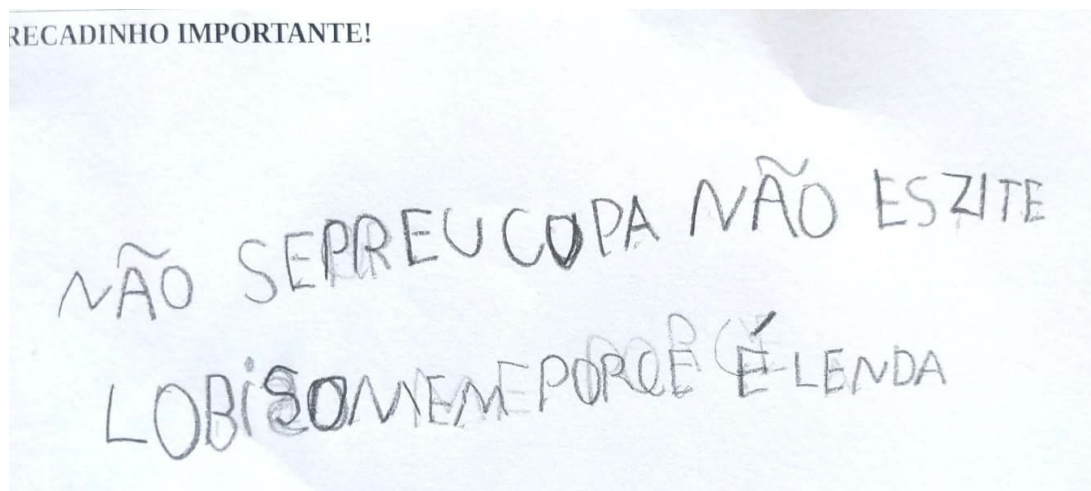 RECADINHO IMPORTANTE!
NÃO SEPREUCOPA NÃO ESZITE
LOBISOMEM PORQE É LENDA